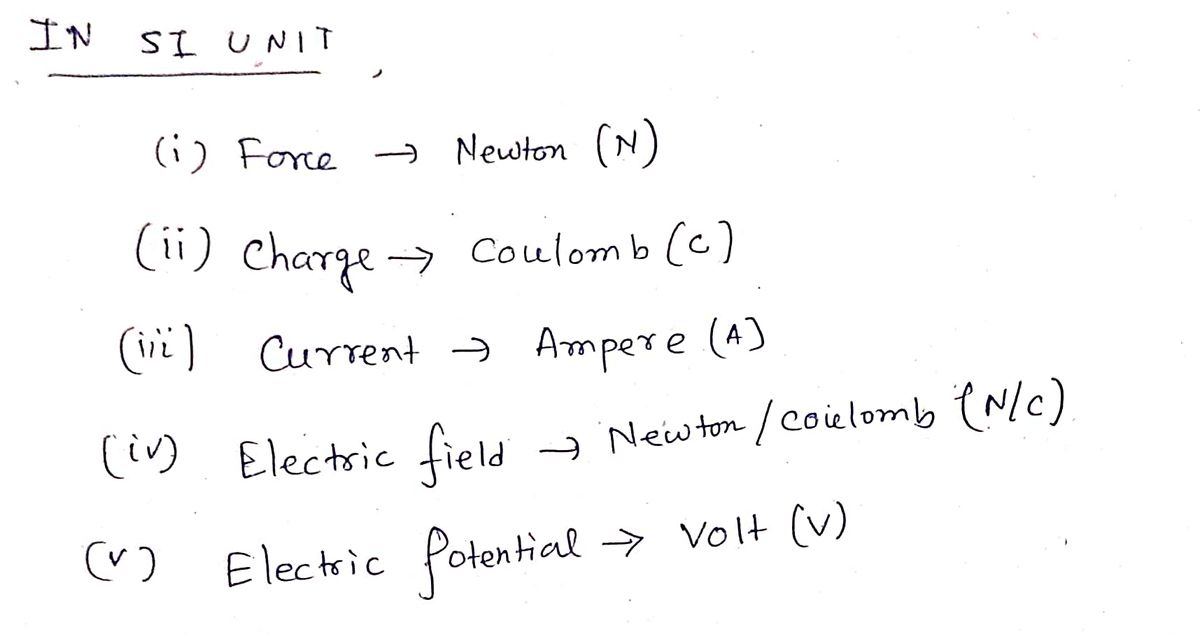 IN SI UNIT,
(i) Force → Newton (N)
(ii) Charge → Coulomb (C)
(iii) Current → Ampere (A)
(iv) Electric field → Newton/coulomb (N/C)
(v) Electric Potential → Volt (V)